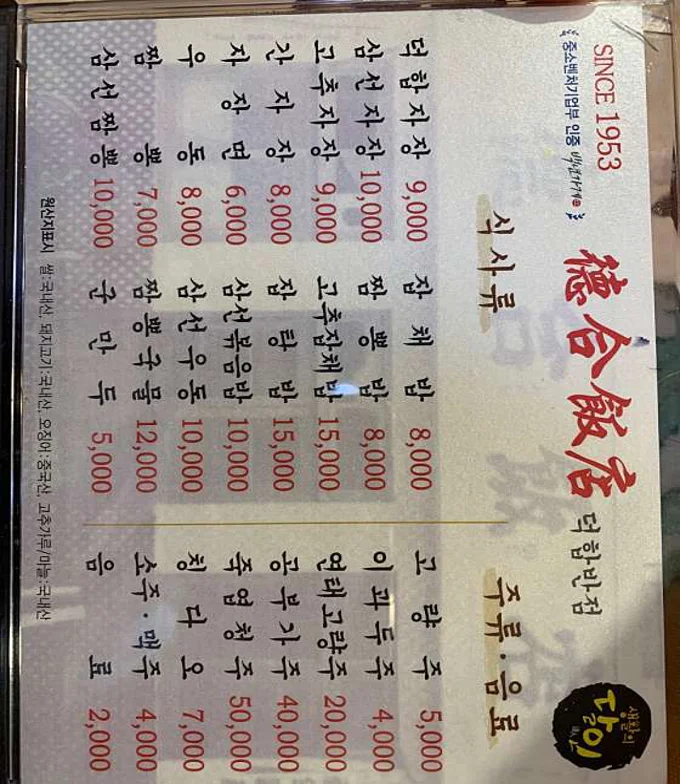 SINCE 1953
중소벤처기업부 인증 백년가게
德合飯店 덕합반점
생활의 달인
식사류
덕합자장 9,000
삼선자장 10,000
고추자장 9,000
간자장 8,000
자장면 6,000
우동 8,000
짬뽕 7,000
삼선짬뽕 10,000
잡채밥 8,000
짬뽕밥 8,000
고추잡채밥 15,000
잡탕밥 15,000
삼선볶음밥 10,000
삼선우동 10,000
짬뽕국물 12,000
군만두 5,000
주류·음료
고량주 5,000
이과두주 4,000
연태고량주 20,000
공부가주 40,000
죽엽청주 50,000
칭다오 7,000
소주·맥주 4,000
음료 2,000
원산지표시 쌀:국내산, 돼지고기:국내산, 오징어:중국산, 고추가루/마늘:국내산